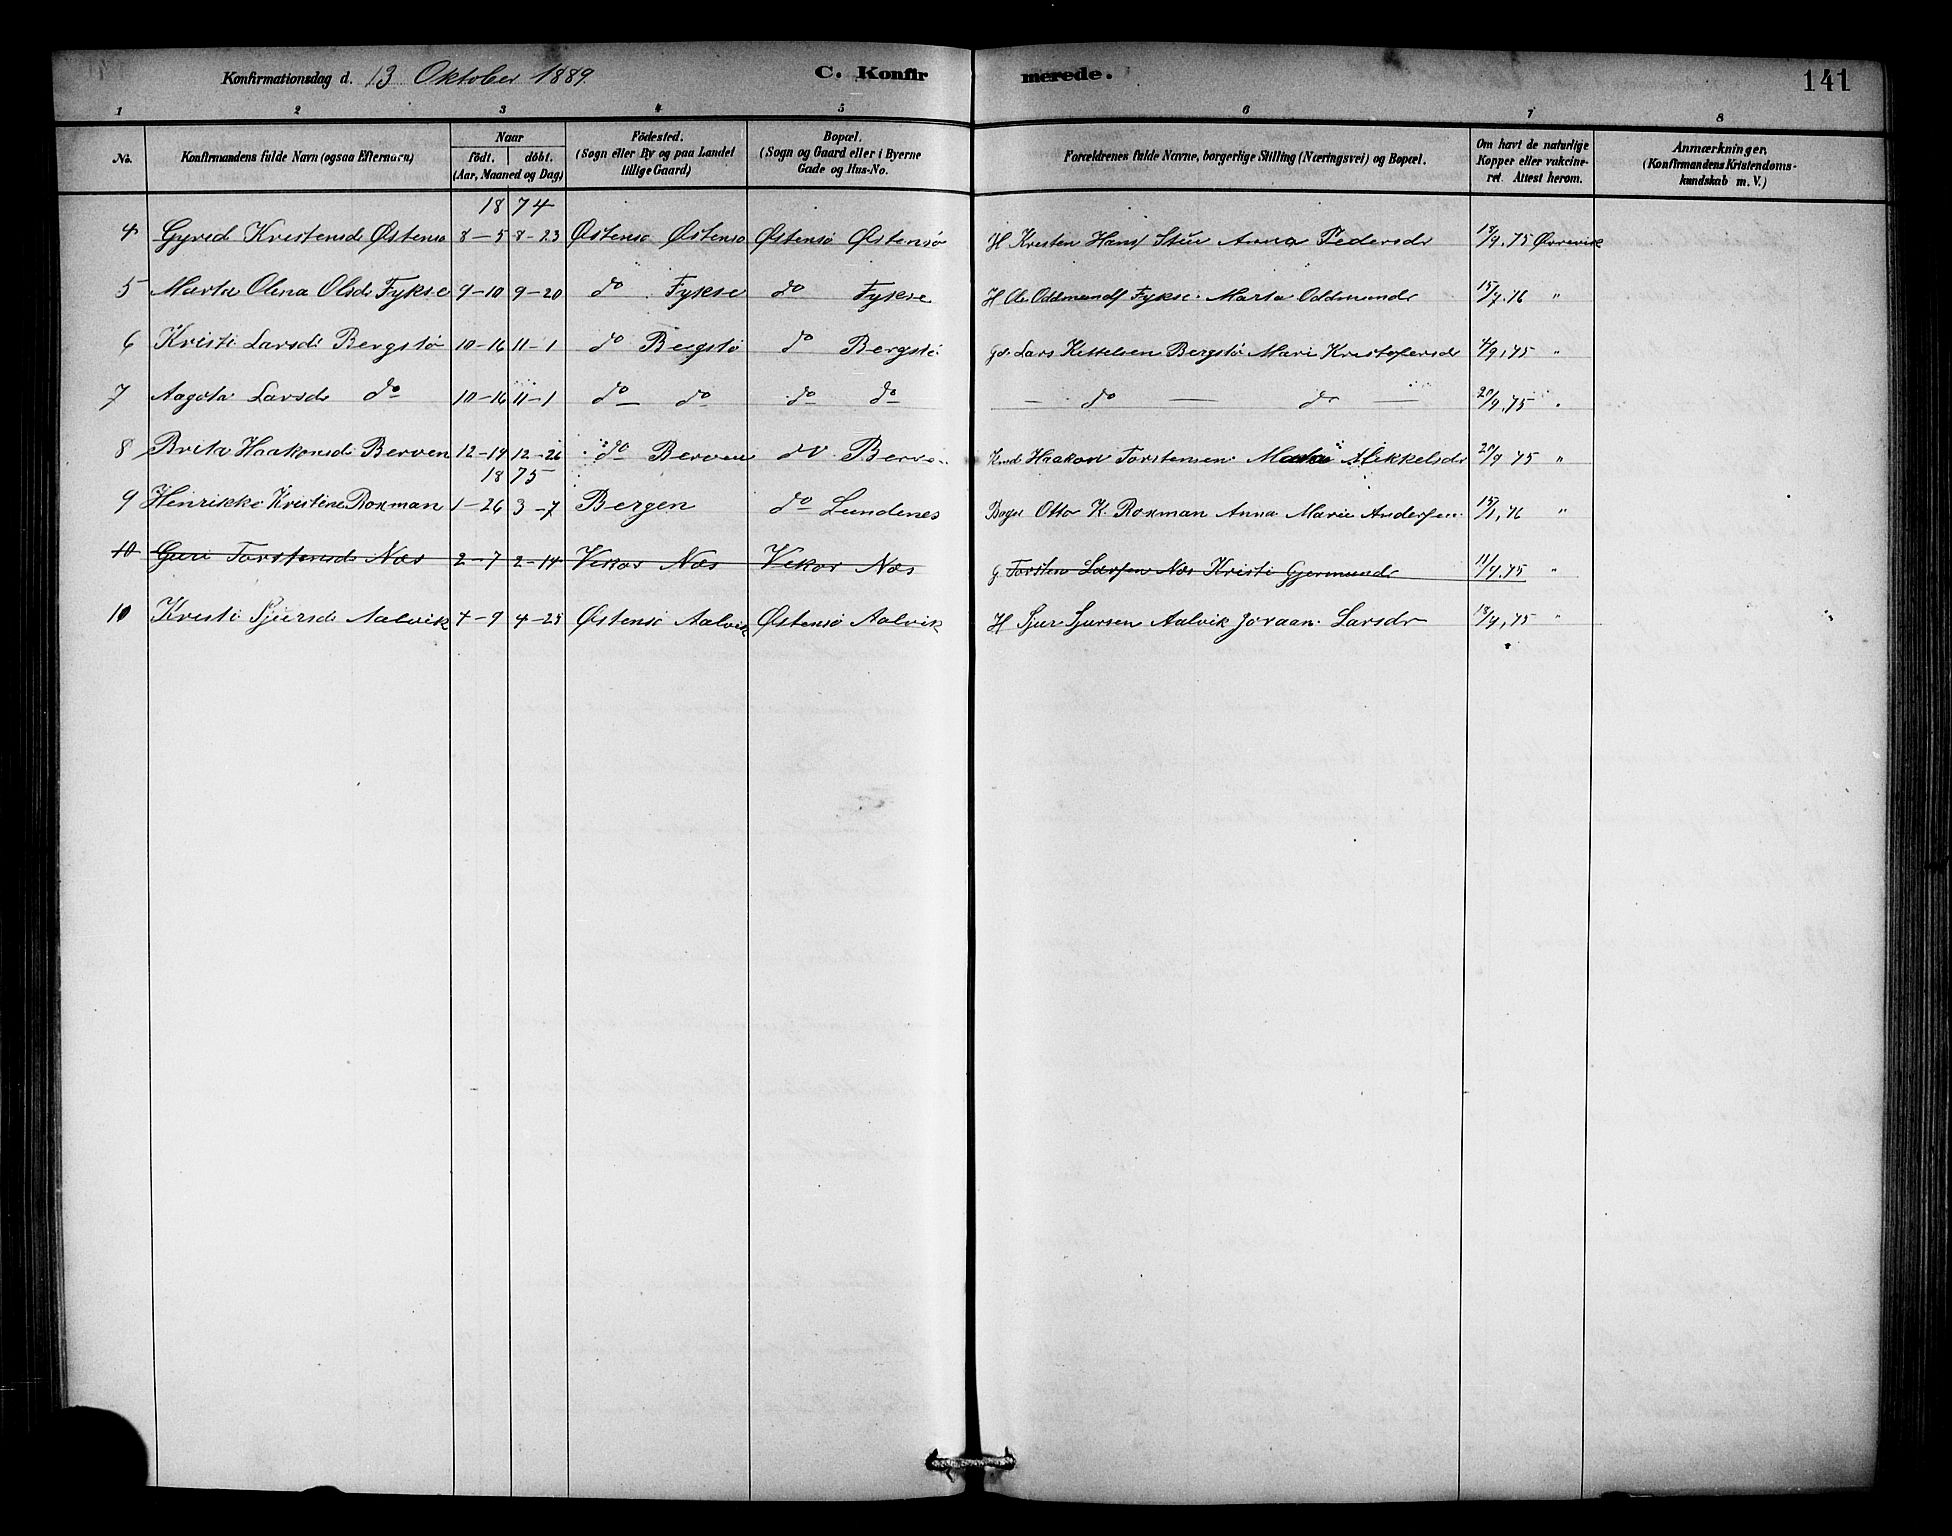 Konfirmationsdag d. 13 Oktober 1889 C. Konfirmerede. 141
1 2 3 4 5 6 7 8
No. Konfirmandens fulde Navn (ogsaa Efternavn) Naar födt. döbt. (Aar, Maaned og Dag) Födested. (Sogn eller By og paa Landet tillige Gaard) Bopæl. (Sogn og Gaard eller i Byerne Gade og Hus-No. Forældrenes fulde Navne, borgerlige Stilling (Næringsvei) og Bopæl. Om havt de naturlige Kopper eller vakcineret. Attest herom. Anmærkninger. (Konfirmandens Kristendomskundskab m. V.)
1874
4 Gyrid Kristensd Østensø 8-5 8-23 Østensø Østensø Østensø Østensø H Kristen Hans Stue Anna Pedersdr 18/9.75 Øvrevik
5 Marta Olena Olsd Fykse 9-10 9-20 do Fykse do Fykse H Ole Oddmunds Fykse Marta Oddmundsdr 15/7.76 "
6 Kristi Larsd Bergstø 10-16 11-1 do Bergstø do Bergstø Gd. Lars Kettelsen Bergstø Mari Kristofersdr 4/9.75 "
7 Aagota Larsd do 10-16 11-1 do do do do – do – do – 20/9.75 "
8 Brita Haakonsd Berven 12-19 12-26 do Berven do Berve Haakon Torstensen Mikkelsdr 20/9 75 "
1875
9 Henrikke Kristine Roxman 1-26 3-7 Bergen do Lundenes Otto K. Roxman Anna Marie Andersen 15/1.76 "
10 Guri Torstensd Næs 2-7 2-14 Vikør Næs Vikør Næs G Torsten Larsen Næs Kristi Gjermundsdr 11/9.75 "
10 Kristi Sjursd Aalvik 4-9 4-25 Østensø Aalvik Østensø Aalvik H Sjur Sjursen Aalvik Joraan Larsdr 18/9.75 "